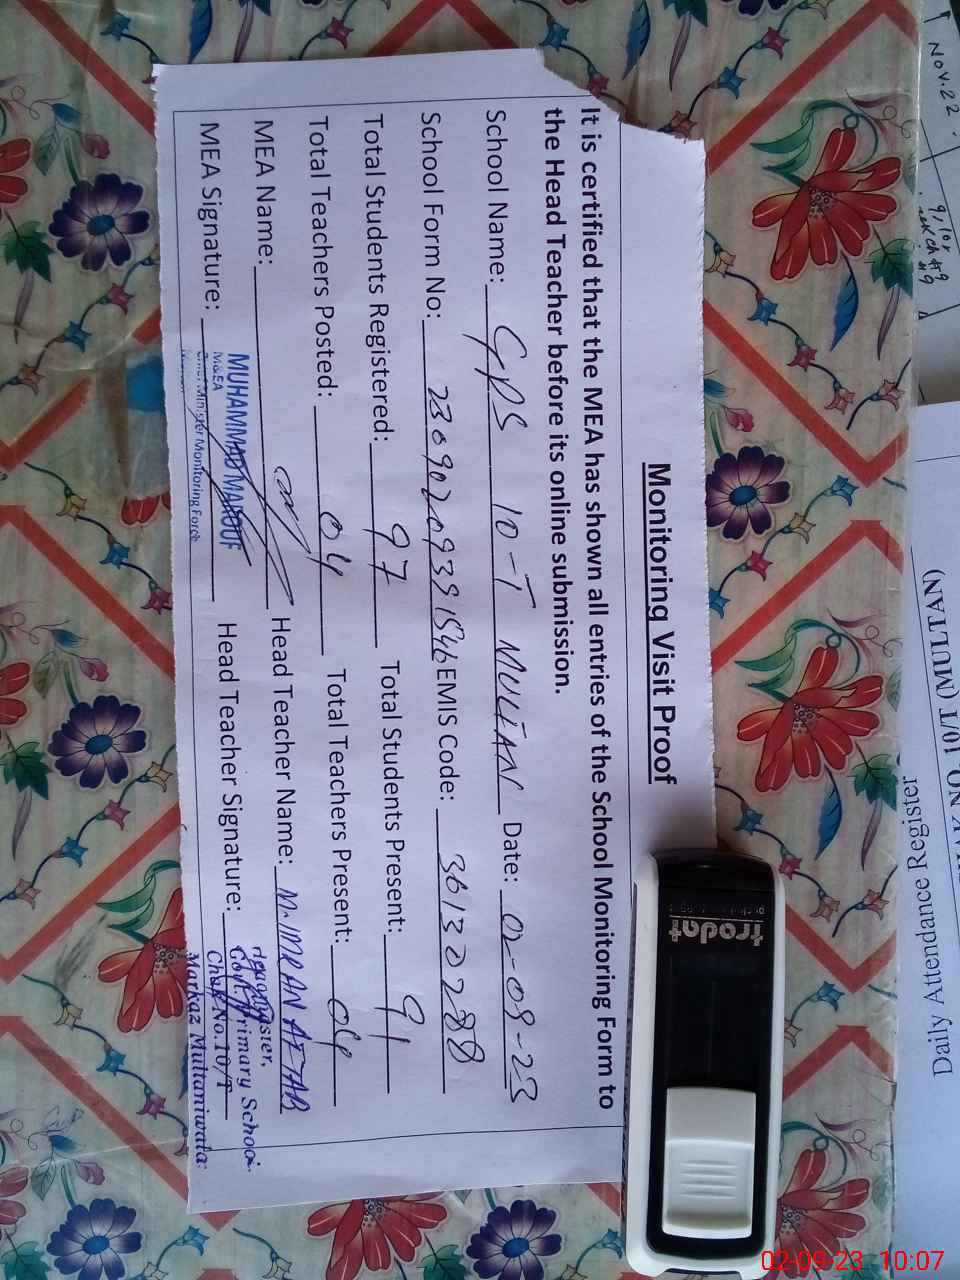 Monitoring Visit Proof
It is certified that the MEA has shown all entries of the School Monitoring Form to
the Head Teacher before its online submission.
School Name: GPS 10-T MULTAN Date: 02-09-23
School Form No: EMIS Code: 36132288
Total Students Registered: 97 Total Students Present: 91
Total Teachers Posted: 04 Total Teachers Present: 04
MEA Name: Head Teacher Name: M. IMRAN AFTAB
MEA Signature: Head Teacher Signature:
MUHAMMAD MAROOF
M&EA
Minister Monitoring Force
Headmaster,
Govt. Primary School
Chak No.10/T
Markaz Multaniwala
trodat
Nov.22
10/T (MULTAN)
Daily Attendance Register
02-09-23 10:07